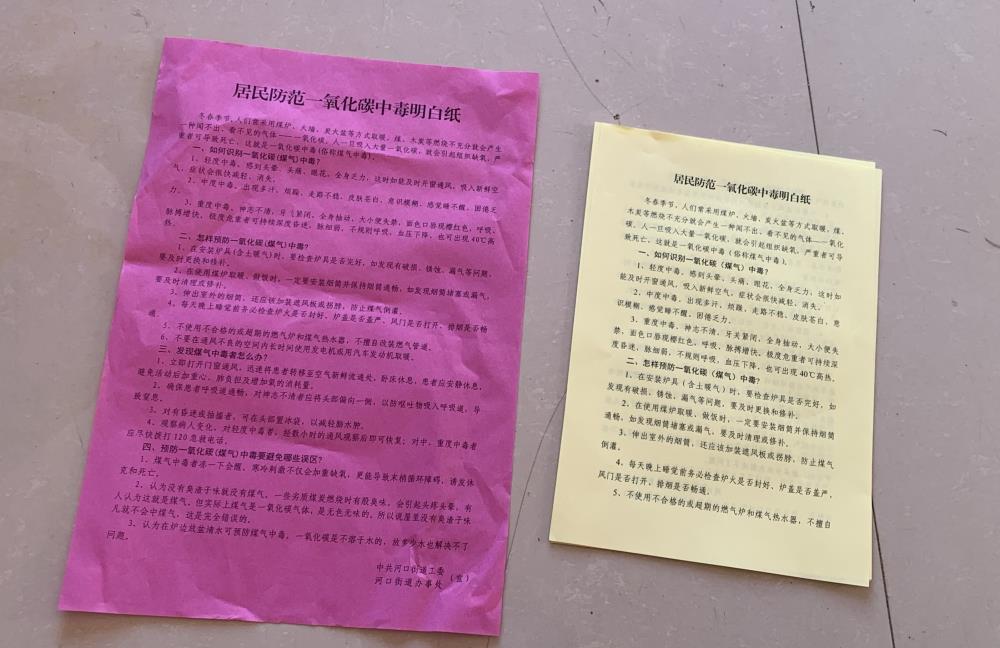 居民防范一氧化碳中毒明白纸
冬春季节,人们常采用煤炉、火墙、炭火盆等方式取暖,煤、木炭等燃烧不充分就会产生
一种闻不出、看不见的气体——一氧化碳,人一旦吸入大量一氧化碳,就会引起组织缺氧,严
重者可导致死亡,这就是一氧化碳中毒(俗称煤气中毒)。
一、如何识别一氧化碳(煤气)中毒?
1、轻度中毒,感到头晕、头痛、眼花、全身乏力,这时如能及时开窗通风,吸入新鲜空
气,症状会很快减轻、消失。
2、中度中毒,出现多汗、烦躁、走路不稳、皮肤苍白、意识模糊、感觉睡不醒、困倦乏
力。
3、重度中毒,神志不清,牙关紧闭,全身抽动,大小便失禁,面色口唇现樱红色,呼吸、
脉搏增快,极度危重者可持续深度昏迷,脉细弱,不规则呼吸,血压下降,也可出现40℃高
热。
二、怎样预防一氧化碳(煤气)中毒?
1、在安装炉具(含土暖气)时,要检查炉具是否完好,如发现有破损、锈蚀、漏气等问题,
要及时更换和修补。
2、在使用煤炉取暖、做饭时,一定要安装烟筒并保持烟筒通畅,如发现烟筒堵塞或漏气,
要及时清理或修补。
3、伸出室外的烟筒,还应该加装遮风板或拐脖,防止煤气倒灌。
4、每天晚上睡觉前务必检查炉火是否封好、炉盖是否盖严、风门是否打开、排烟是否畅
通。
5、不使用不合格的或超期的燃气炉和煤气热水器,不擅自改装燃气管道。
6、不要在通风不良的空间内长时间使用发电机或用汽车发动机取暖。
三、发现煤气中毒者怎么办?
1、立即打开门窗通风,迅速将患者转移至空气新鲜流通处,卧床休息,患者应安静休息,
避免活动后加重心、肺负担及增加氧的消耗量。
2、确保患者呼吸道通畅,对神志不清者应将头部偏向一侧,以防呕吐物吸入呼吸道,导
致窒息。
3、对有昏迷或抽搐者,可在头部置冰袋,以减轻脑水肿。
4、观察病人变化,对轻度中毒者,经数小时的通风观察后即可恢复;对中、重度中毒者
应尽快拨打120急救电话。
四、预防一氧化碳(煤气)中毒要避免哪些误区?
1、煤气中毒者冻一下会醒。寒冷刺激不仅会加重缺氧,更能导致末梢循环障碍,诱发休
克和死亡。
2、认为没有臭渣子味就没有煤气。一些劣质煤炭燃烧时有股臭味,会引起头疼头晕,有
人认为这就是煤气。但实际上煤气是一氧化碳气体,是无色无味的。所以说屋里没有臭渣子味
儿就不会中煤气,这是完全错误的。
3、认为在炉边放盆清水可预防煤气中毒。一氧化碳是不溶于水的,放多少水也解决不了
问题。
中共河口街道工委
河口街道办事处(宣)
居民防范一氧化碳中毒明白纸
冬春季节,人们常采用煤炉、火墙、炭火盆等方式取暖,煤、
木炭等燃烧不充分就会产生一种闻不出、看不见的气体——一氧化
碳,人一旦吸入大量一氧化碳,就会引起组织缺氧,严重者可导
致死亡,这就是一氧化碳中毒(俗称煤气中毒)。
一、如何识别一氧化碳(煤气)中毒?
1、轻度中毒,感到头晕、头痛、眼花、全身乏力,这时如
能及时开窗通风,吸入新鲜空气,症状会很快减轻、消失。
2、中度中毒,出现多汗、烦躁、走路不稳、皮肤苍白、意
识模糊、感觉睡不醒、困倦乏力。
3、重度中毒,神志不清,牙关紧闭,全身抽动,大小便失
禁,面色口唇现樱红色,呼吸、脉搏增快,极度危重者可持续深
度昏迷,脉细弱,不规则呼吸,血压下降,也可出现40℃高热。
二、怎样预防一氧化碳(煤气)中毒?
1、在安装炉具(含土暖气)时,要检查炉具是否完好,如
发现有破损、锈蚀、漏气等问题,要及时更换和修补。
2、在使用煤炉取暖、做饭时,一定要安装烟筒并保持烟筒
通畅,如发现烟筒堵塞或漏气,要及时清理或修补。
3、伸出室外的烟筒,还应该加装遮风板或拐脖,防止煤气
倒灌。
4、每天晚上睡觉前务必检查炉火是否封好、炉盖是否盖严、
风门是否打开、排烟是否畅通。
5、不使用不合格的或超期的燃气炉和煤气热水器,不擅自